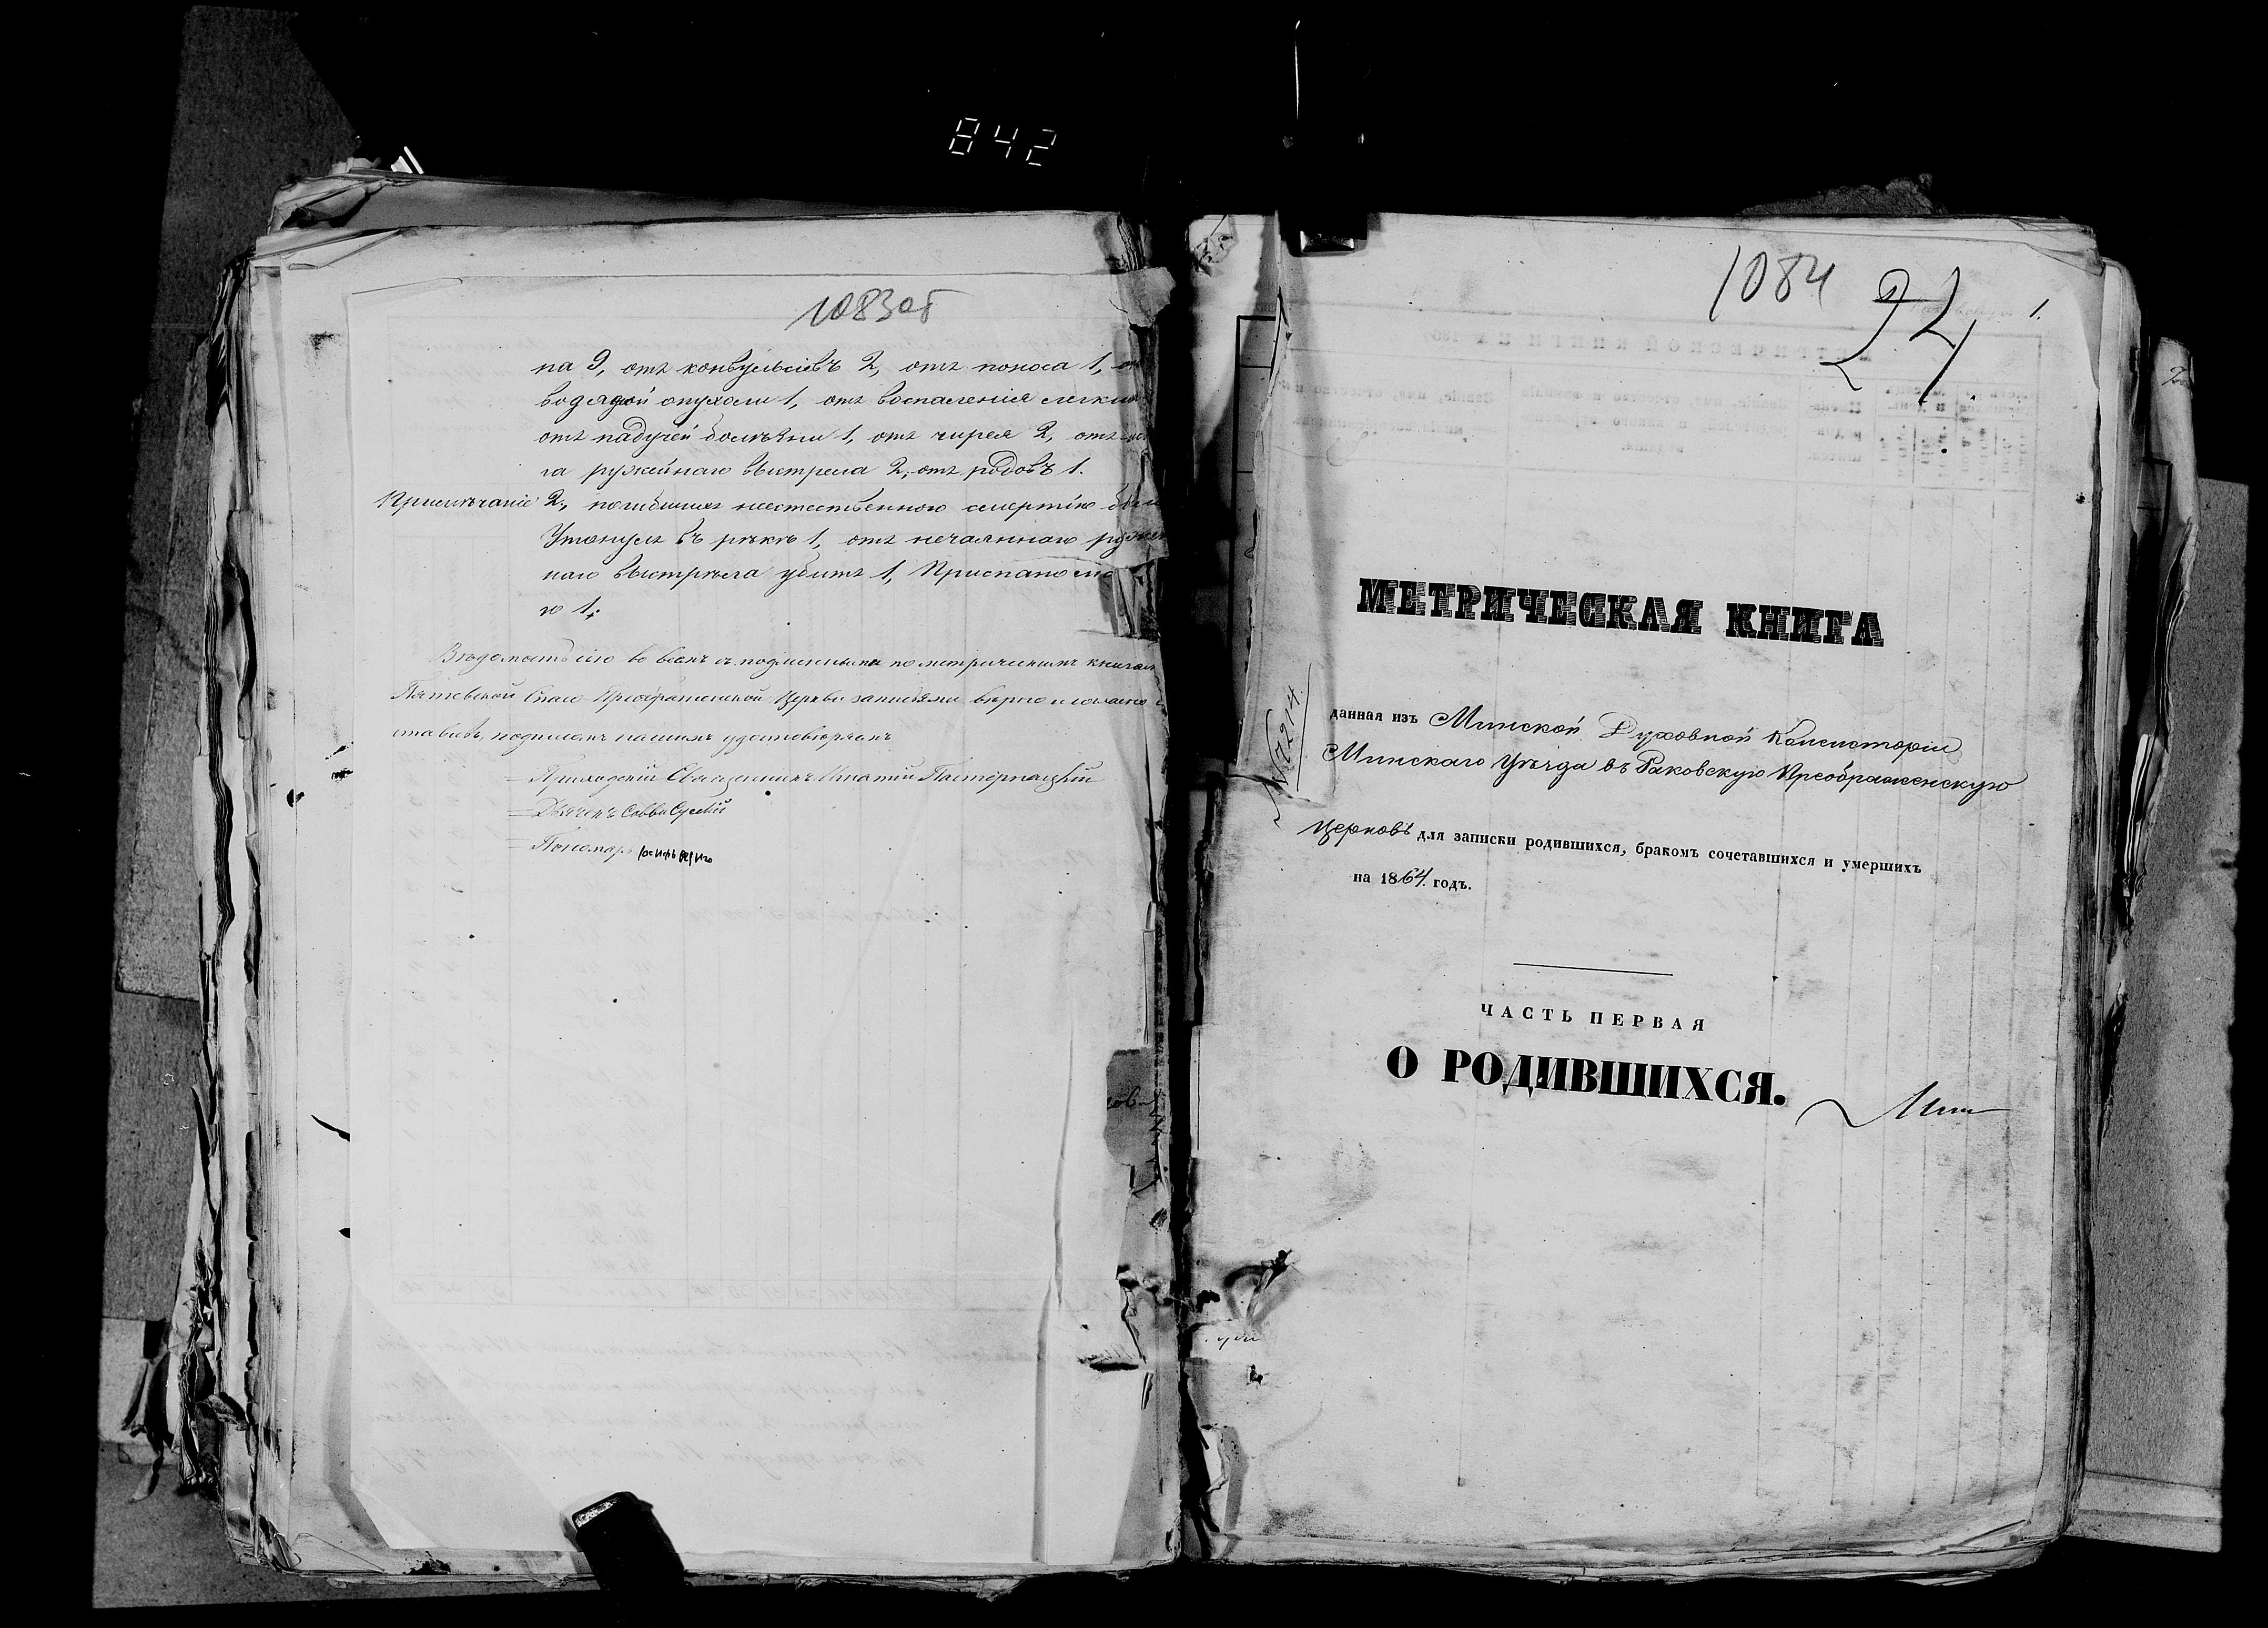 842
1083об
на 9, отъ конвульсiевъ 2, отъ поноса 1,
водяной опухоли 1, отъ воспаленiя легки
отъ падучей болѣзни 1, отъ чирея 2, отъ
га ружейнаго выстрела 2, отъ родовъ 1.
Примѣчанiе 2, погибшихъ неестественною смертiю
Утонулъ въ рѣкѣ 1, отъ нечаяннаго руже
наго выстрѣла убитъ 1, Приспано
ю 1;
Вѣдомость сiю во всемъ съ подлинными по метрическимъ книгам
Спасо Преображенской Церкви записями вѣрно и согласно
ставивъ, подписомъ нашимъ удостовѣряемъ
Приходскiй Священникъ Игнатiй Пастернацкiй
Дьячекъ Савва
Пономарь
1084
24
1.
МЕТРИЧЕСКАЯ КНИГА
№ 7214.
данная изъ Минской Духовной Консисторiи
Минскаго Уѣзда въ Раковскую Преображенскую
Церковь для записки родившихся, бракомъ сочетавшихся и умершихъ
на 1864 годъ.
ЧАСТЬ ПЕРВАЯ
О РОДИВШИХСЯ.